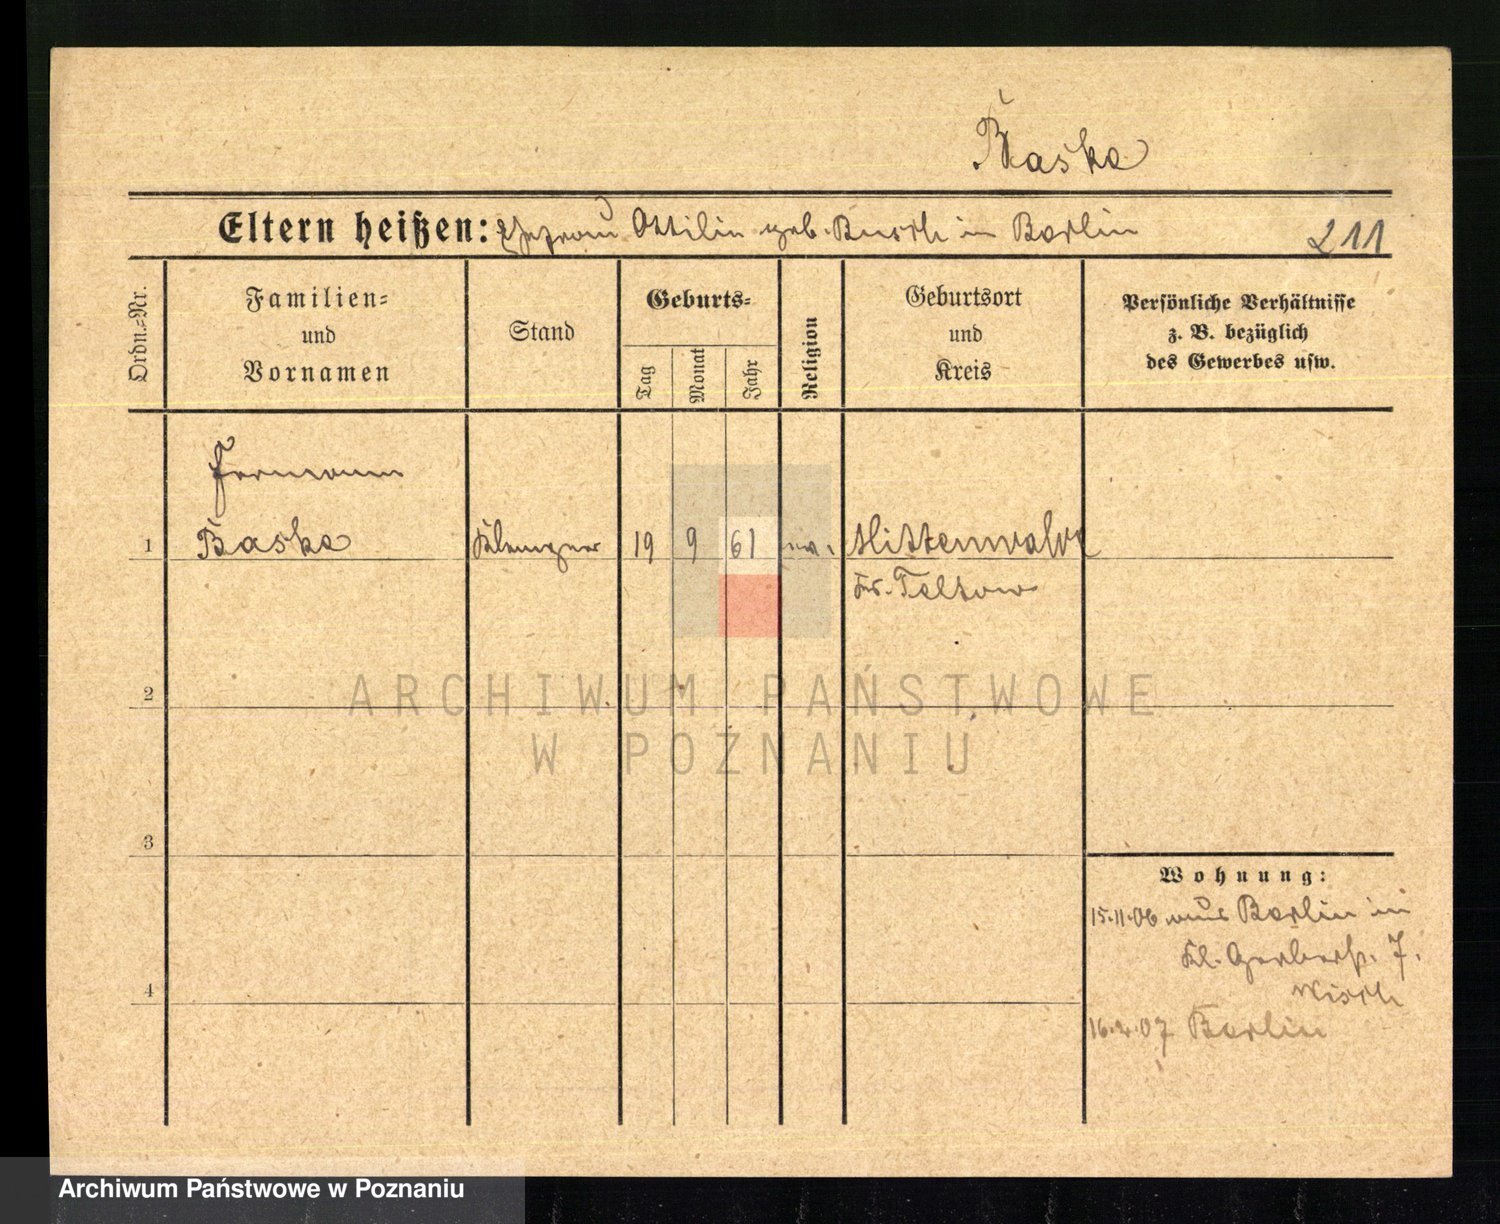 Baske
Eltern heißen: Ehefrau Ottilie geb. Busch in Berlin 211
Ordn.=Nr.
Familien=
und
Vornamen
Stand
Geburts=
Tag
Monat
Jahr
Religion
Geburtsort
und
Kreis
Persönliche Verhältnisse
z. B. bezüglich
des Gewerbes usw.
Hermann
1 Baske Klempner 19 9 61 ev. Mittenwalde
Kr. Teltow
2
3
4
Wohnung:
15.11.06 aus Berlin in
Kl. Gerberstr. 7.
16.2.07 Berlin
ARCHIWUM PAŃSTWOWE
W POZNANIU
Archiwum Państwowe w Poznaniu